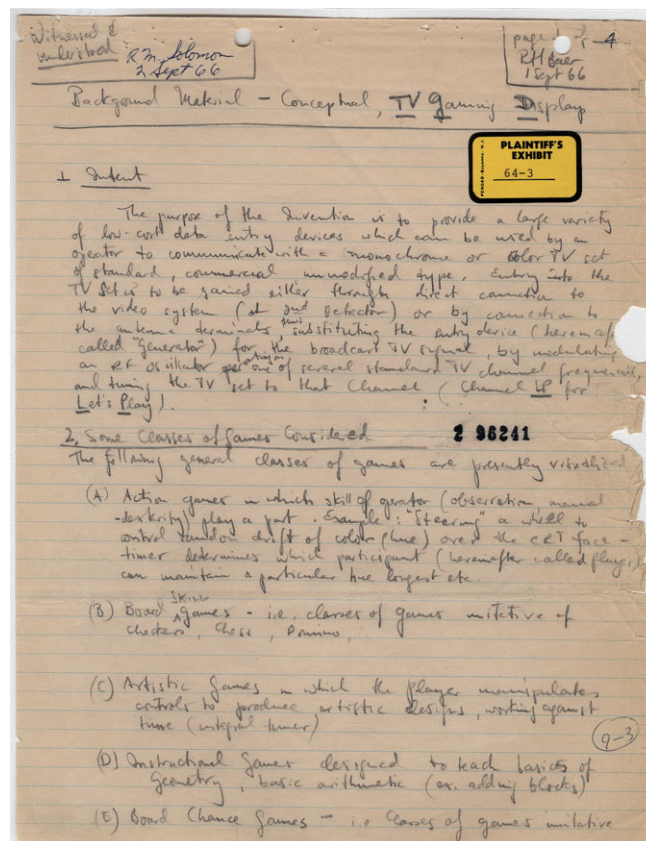 Witnessed &
understood R.M. Solomon
2 Sept 66
page 1 of 4
RH Baer
1 Sept 66
Background Material – Conceptual, TV Gaming Display
PLAINTIFF'S
EXHIBIT
64-3
1 Intent
The purpose of the Invention is to provide a large variety
of low-cost data entry devices which can be used by an
operator to communicate with a monochrome or color TV set
of standard, commercial unmodified type. Entry into the
TV Set is to be gained either through direct connection to
the video system (at 2nd Detector) or by connection to
the antenna terminals, thus substituting the entry device (hereinaf
called "generator") for the broadcast TV signal, by modulating
an RF oscillator one of several standard TV channel frequencies,
and tuning the TV set to that Channel (Channel LP for
Let's Play).
2. Some Classes of Games Considered
2 96241
The following general classes of games are presently visualized
(A) Action games in which skill of operator (observation, manual
-dexterity) play a part. Example: "Steering" a wheel to
control random drift of color (hue) over the CRT face –
timer determines which participant (hereinafter called player)
can maintain a particular hue longest etc.
(B) Board SKILL games – i.e. classes of games imitative of
Checkers, Chess, Domino,
(C) Artistic Games in which the player manipulates
controls to produce artistic designs, working against
time (integral timer)
9-3
(D) Instructional Games designed to teach basics of
Geometry, basic arithmetic (ex. adding blocks)
(E) Board Chance Games – i.e classes of games imitative